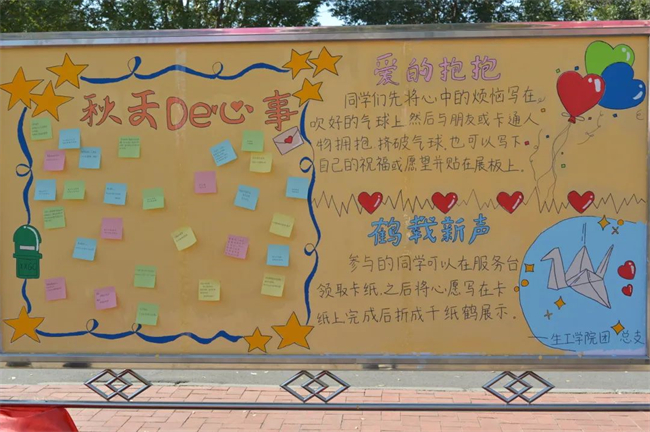 秋天De心事
爱的抱抱
同学们先将心中的烦恼写在
吹好的气球上,然后与朋友或卡通人
物拥抱.挤破气球.也可以写下
自己的祝福或愿望并贴在展板上.
鹤载新声
参与的同学可以在服务台
领取卡纸.之后将心愿写在卡
纸上完成后折成千纸鹤展示.
——生工学院团总支